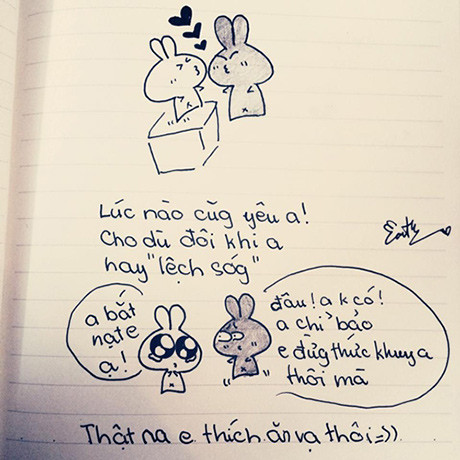 Lúc nào cũg yêu a!
Cho dù đôi khi a
hay "lệch sóg"
a bắt
nạt e
ạ!
đâu! a k có!
a chỉ bảo
e đừg thức khuya
thôi mà
Thật ra e thích ăn vạ thôi =)).